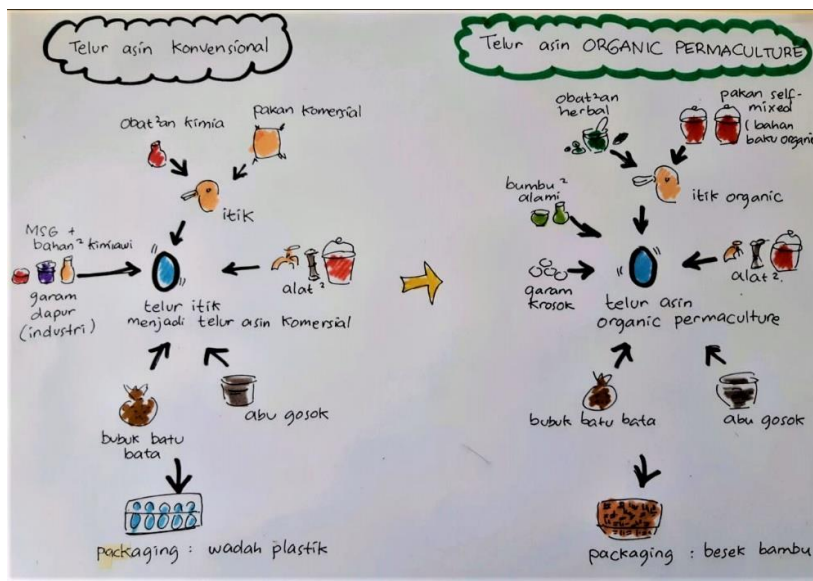 Telur asin Konvensional
obat²an kimia
pakan komersial
itik
MSG +
bahan² kimiawi
garam
dapur
(industri)
alat²
telur itik
menjadi telur asin komersial
bubuk batu
bata
abu gosok
packaging : wadah plastik
Telur asin ORGANIC PERMACULTURE
obat²an
herbal
pakan self-
mixed
(bahan
baku organic
itik organic
bumbu²
alami
garam
krosok
alat².
telur asin
organic permaculture
bubuk batu bata
abu gosok
packaging : besek bambu